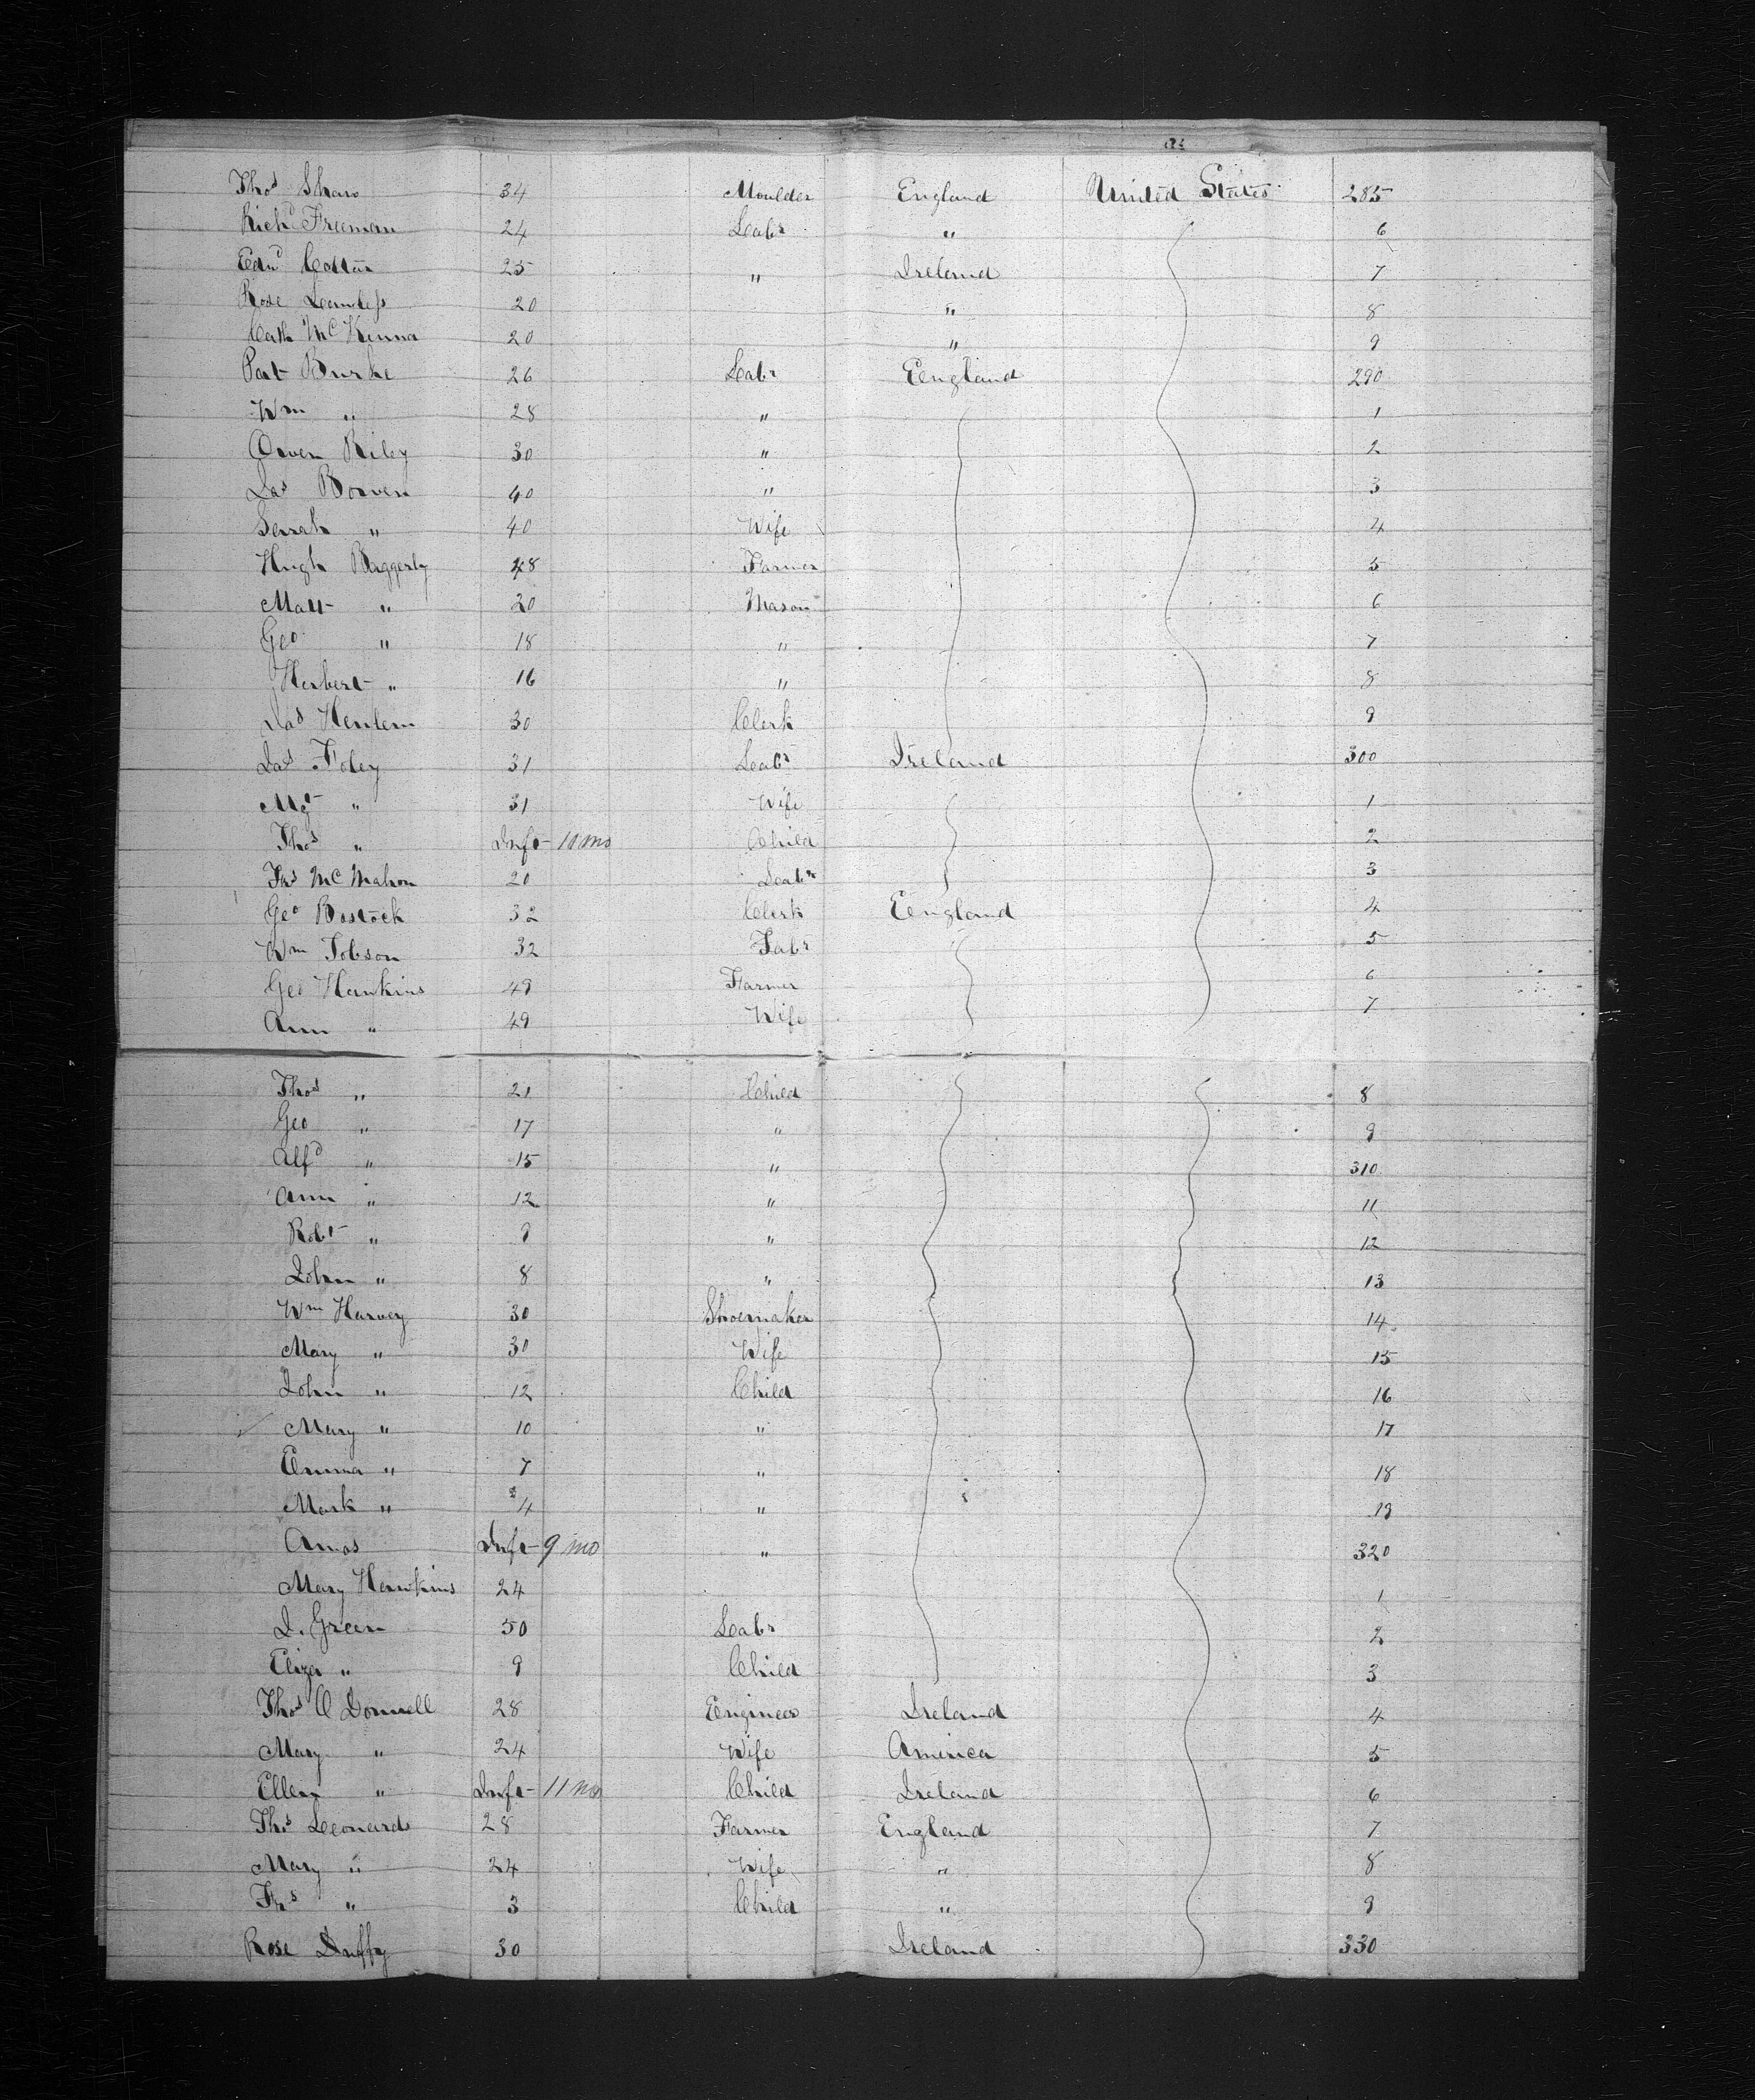 Thos Shaw 34 Moulder England United States 285
Richd Freeman 24 Labr " 6
Edwd Cottar 25 " Ireland 7
Rose 20 " 8
Cath McKenna 20 " 9
Pat Burke 26 Labr England 290
Wm " 28 " 1
Owen Riley 30 " 2
Jas Bowen 40 " 3
Sarah " 40 Wife 4
Hugh Baggerly 48 Farmer 5
Matt " 20 Mason 6
Geo " 18 " 7
Herbert " 16 " 8
Jas 30 Clerk 9
Jas Foley 31 Labr Ireland 300
Mgt " 31 Wife 1
Thos " Inft 10 mo Child 2
Fas McMahon 20 Labr 3
Geo Bostock 32 Clerk England 4
Wm Jobson 32 Labr 5
Geo Hawkins 49 Farmer 6
Ann " 49 Wife 7
Thos " 21 Child 8
Geo " 17 " 9
Alfd " 15 " 310
Ann " 12 " 11
Robt " 9 " 12
John " 8 " 13
Wm Harvey 30 Shoemaker 14
Mary " 30 Wife 15
John " 12 Child 16
Mary " 10 " 17
Emma " 7 " 18
Mark " 4 " 19
Amos Inft 9 mo " 320
Mary Hawkins 24 1
J. Green 50 Labr 2
Eliza " 9 Child 3
Thos O Donnell 28 Engineer Ireland 4
Mary " 24 Wife America 5
Ellen " Inft 11 mo Child Ireland 6
Thos Leonards 28 Farmer England 7
Mary " 24 Wife " 8
Ths " 3 Child " 9
Rose Duffy 30 Ireland 330